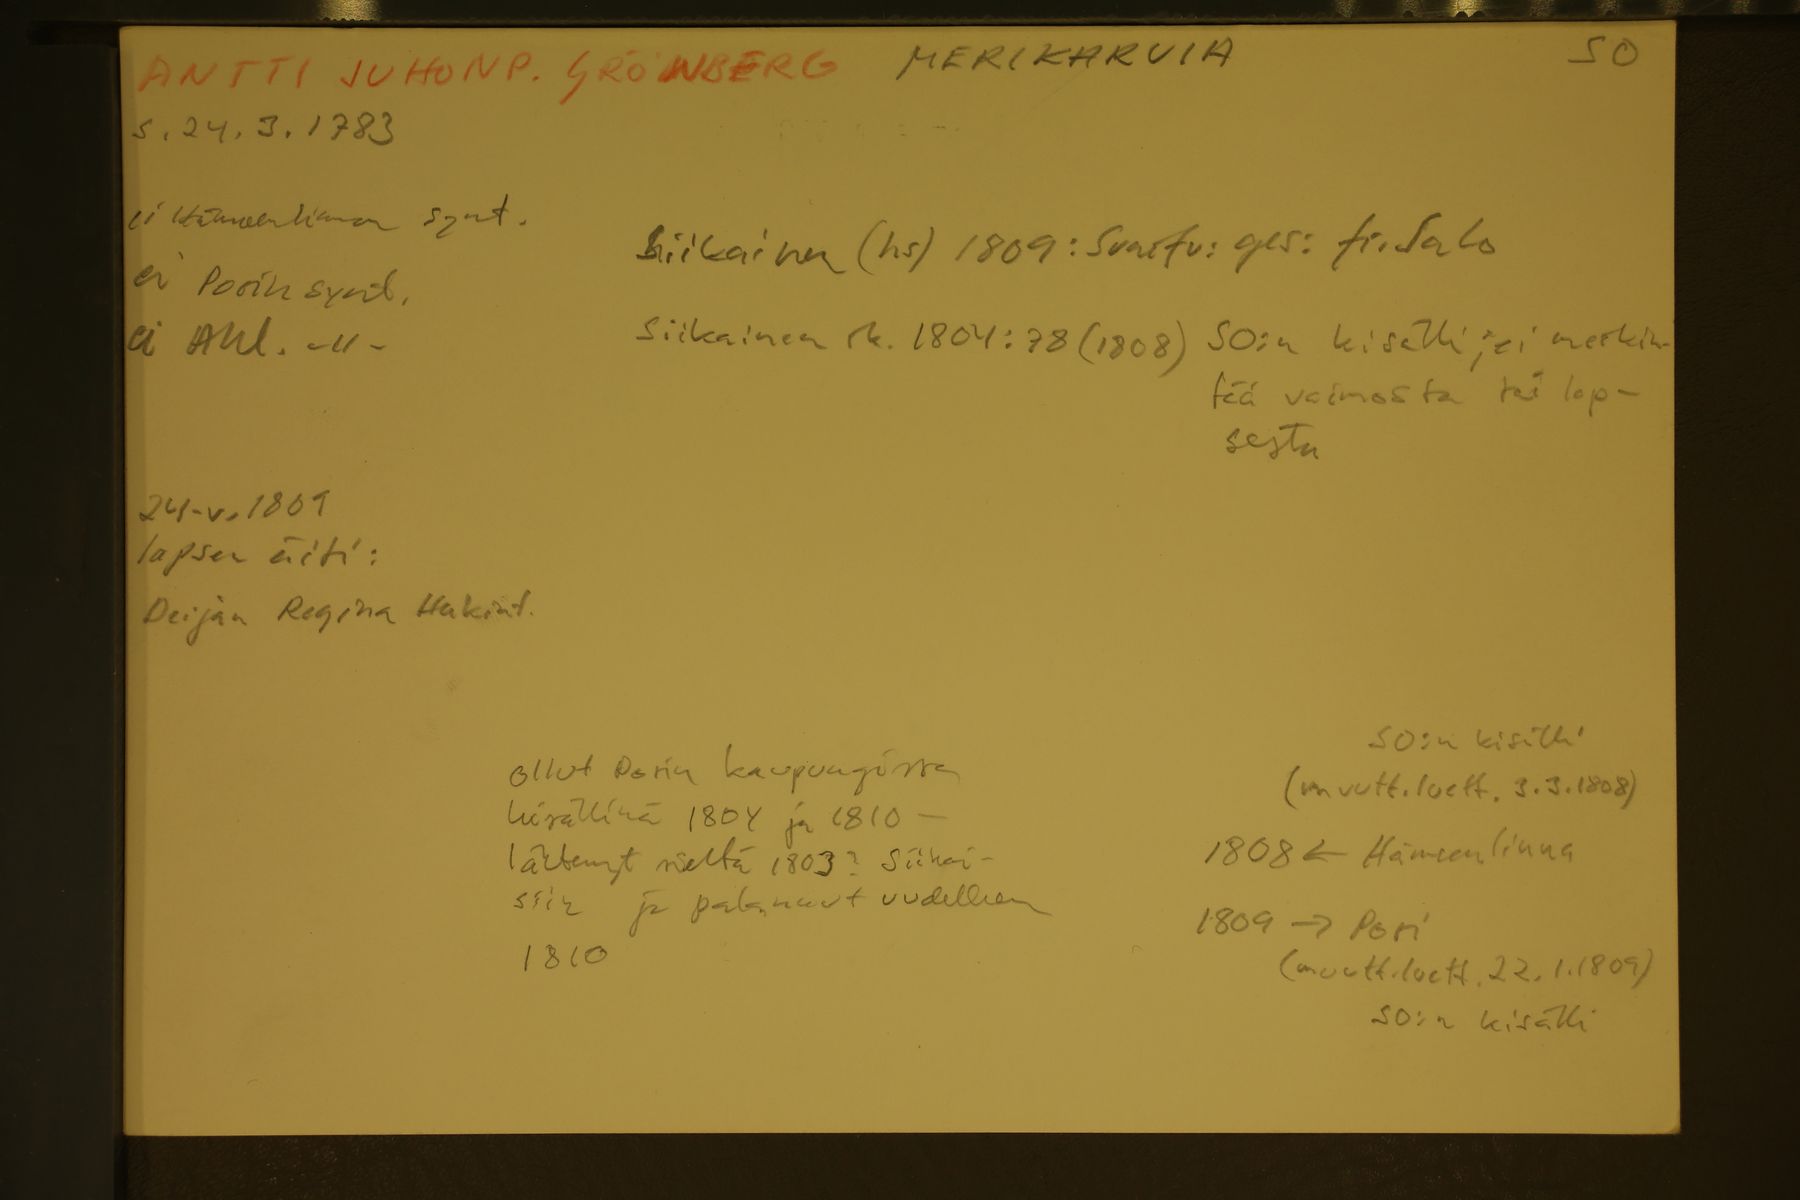 ANTTI JUHONP. GRÖNBERG MERIKARVIA SO
s. 24.3.1783
ei Hämeenlinnan synt.
ei Porin synt.
ei Ahl. -"-
Siikainen (hs) 1809: Svarfv: ges: fr. Salo
Siikainen rk. 1804:78 (1808) SO:n kisälli; ei merkin-
tää vaimosta tai lap-
sesta
24-v. 1809
lapsen äiti:
Deijan Regina Hukint.
ollut Porin kaupungissa
kisällinä 1804 ja 1810 -
lähtenyt sieltä 1803? Siikai-
siin ja palannut uudelleen
1810
SO:n kisälli
(muutt.luett. 3.3.1808)
1808 ← Hämeenlinna
1809 → Pori
(muutt.luett. 22.1.1809)
SO:n kisälli